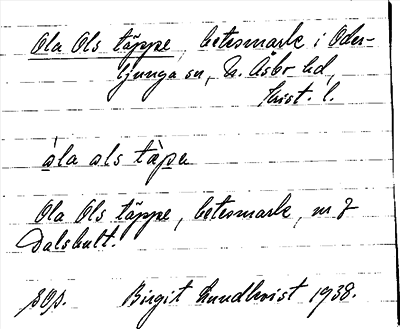 Ola Ols täppe, betesmark i Oder-
ljunga sn, N. Åsbo hd,
Krist. l.
àla als tàpa
Ola Ols täppe, betesmark, nr 7
Dalshult.
Birgit Lundkvist 1938.